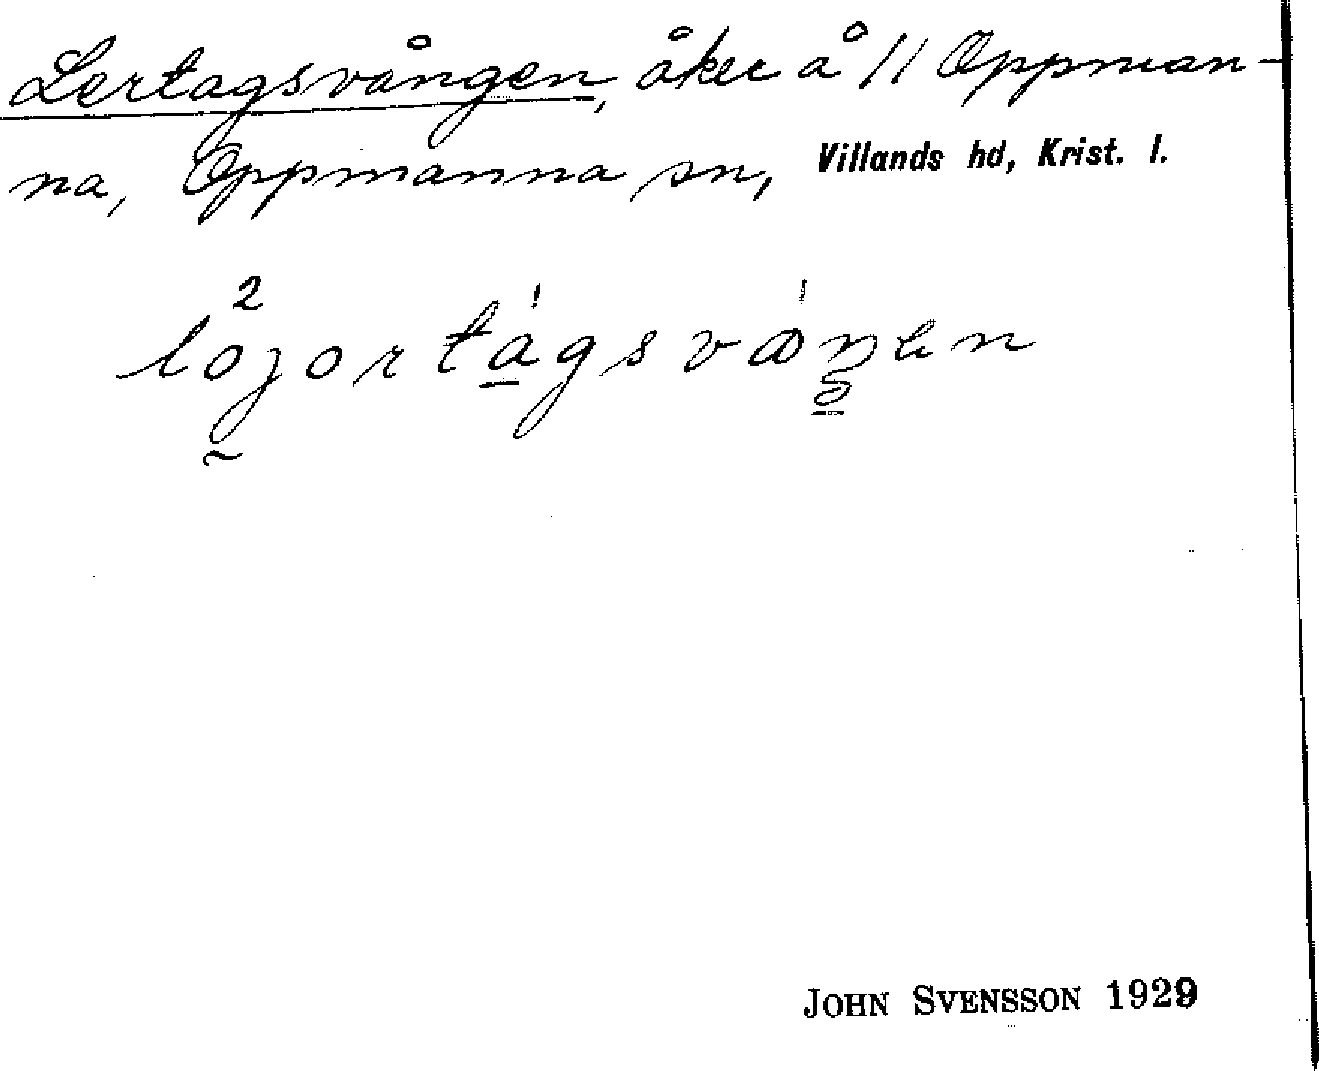 Lertagsvången, åker å 11 Oppman-
na, Oppmanna sn, Villands hd, Krist. l.
JOHN SVENSSON 1929